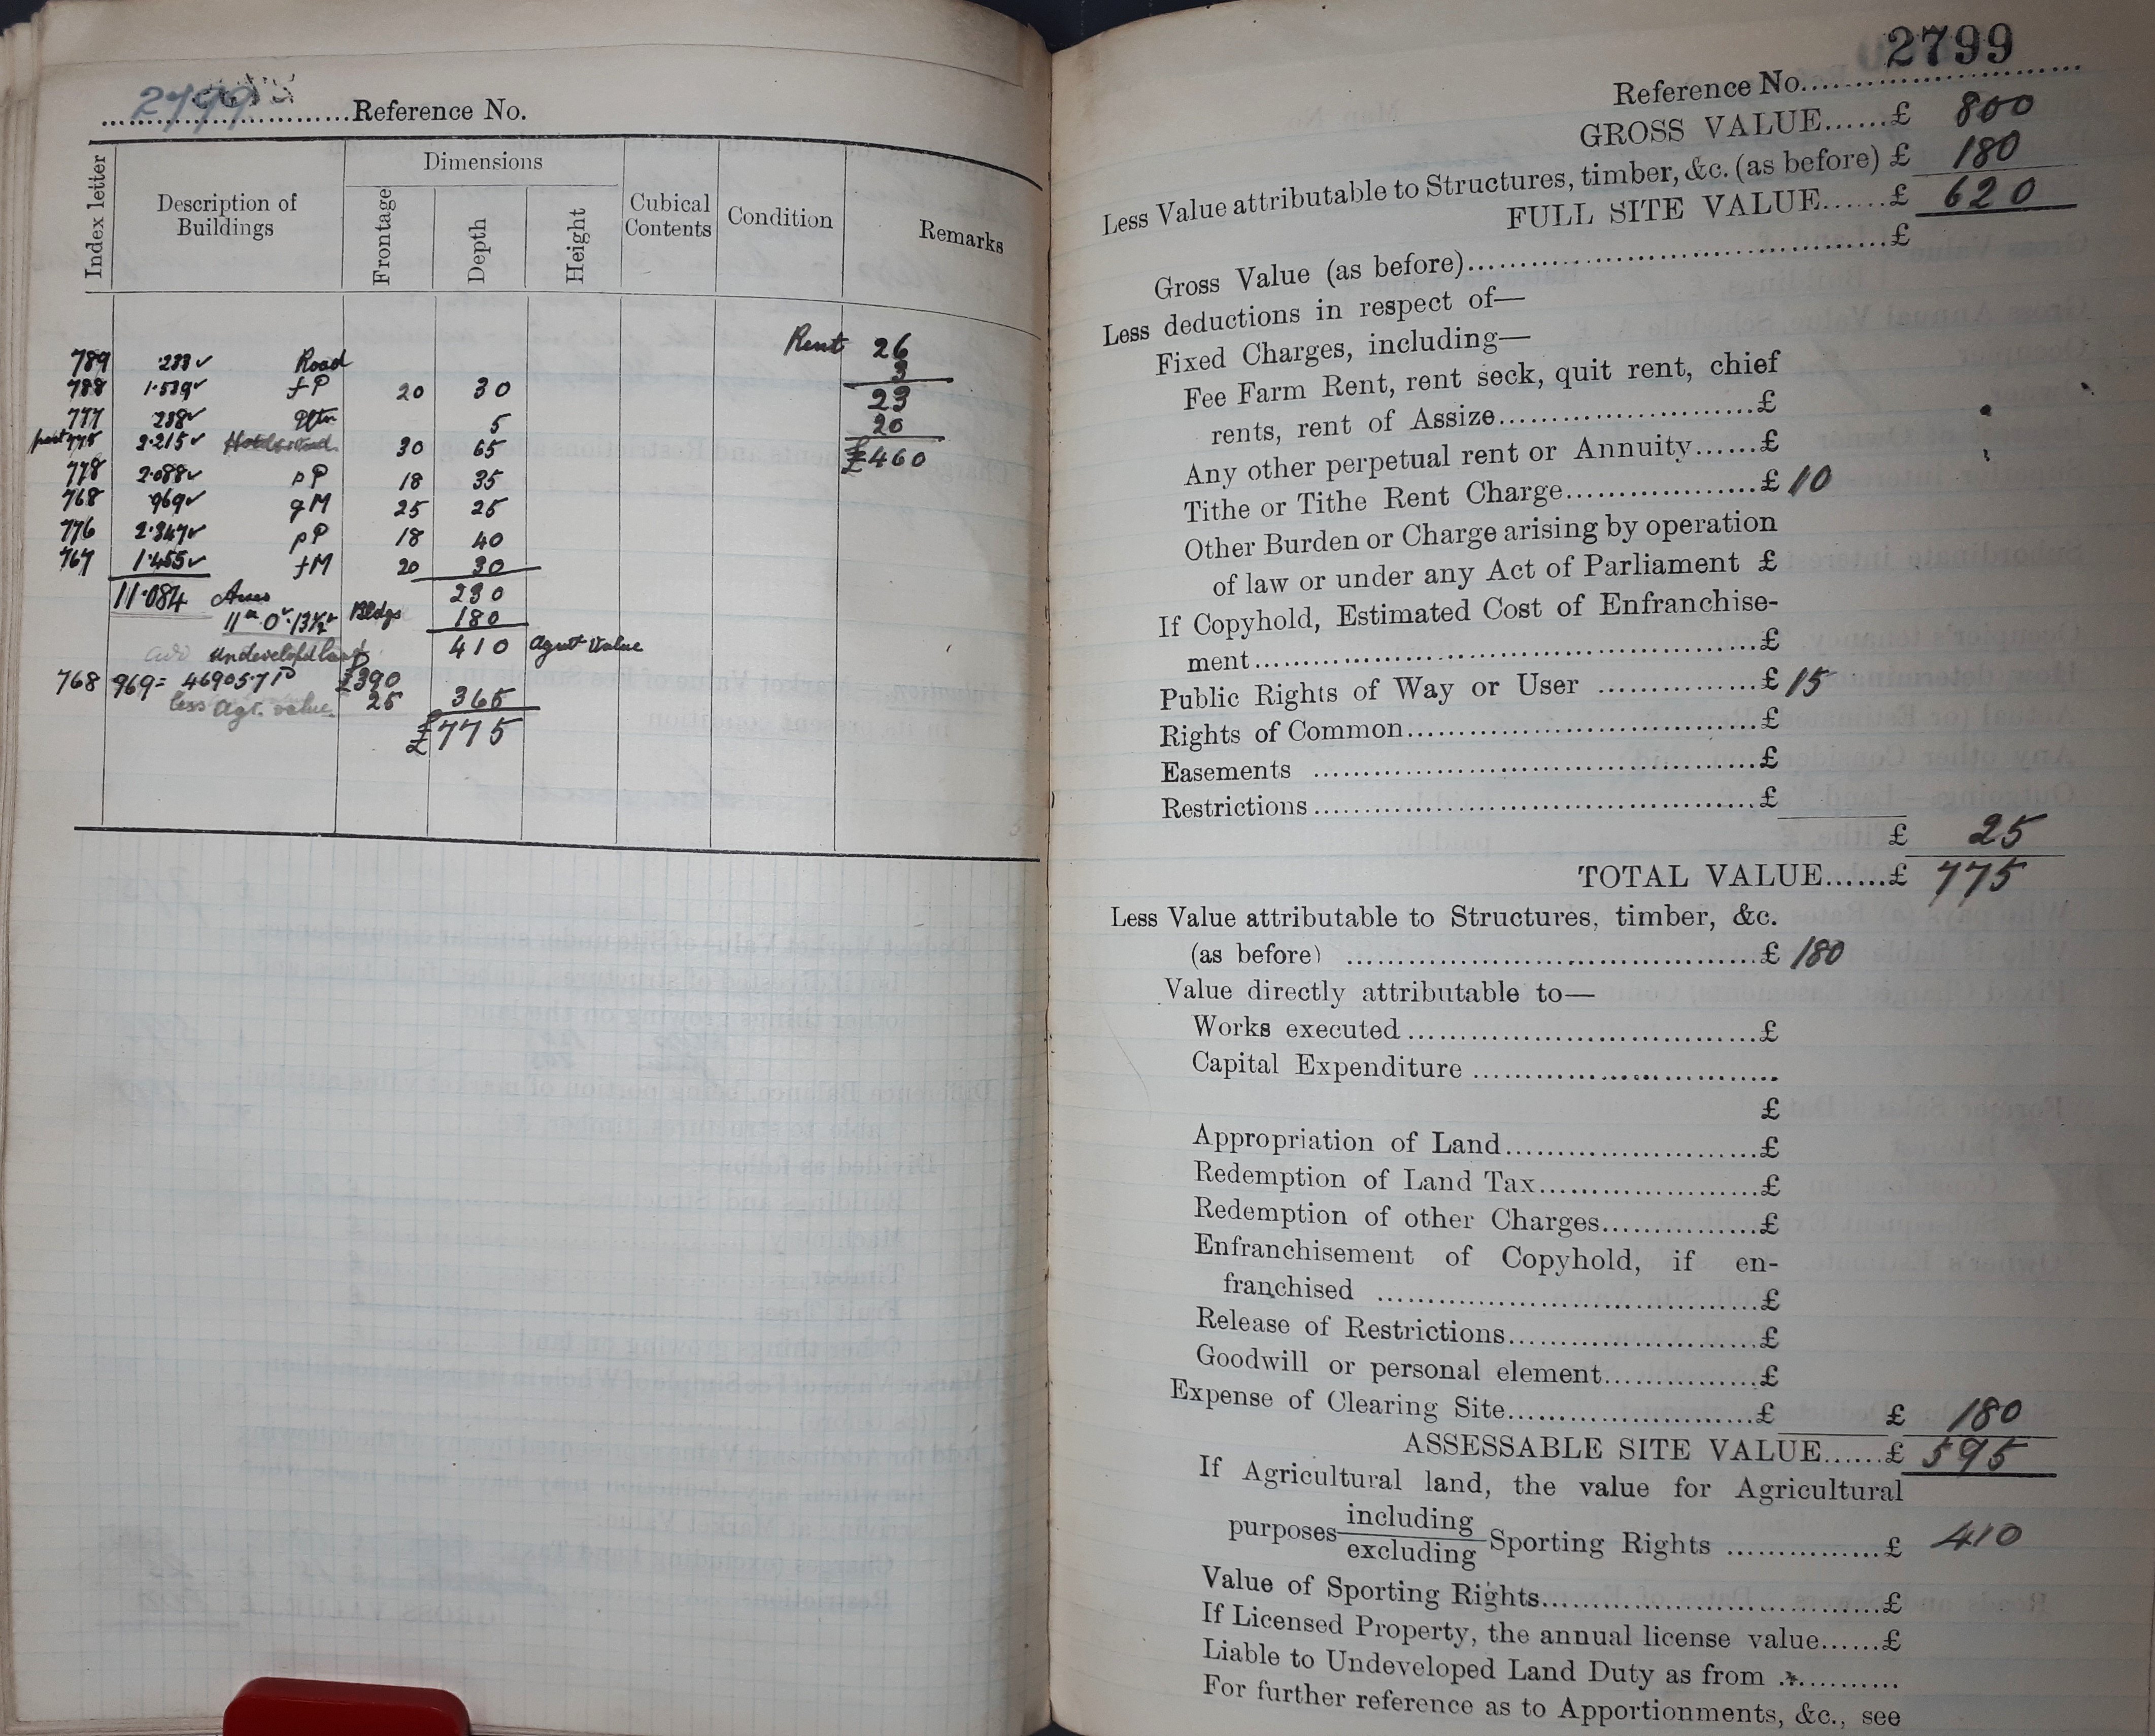 2799 Reference No.
Index letter
Description of Buildings
Dimensions
Frontage
Depth
Height
Cubical Contents
Condition
Remarks
Rent 26
3
23
20
£460
789 .283 Road
788 1.539 fP 20 30
777 288 5
part 775 2.215 30 65
778 2.088 pP 18 35
768 969 gM 25 25
776 2.347 pP 18 40
767 1.455 fM 20 30
11.084 Acres 230
11a 0r 13½ Bldgs 180
410 Agst Value
undeveloped land
768 969= 46905.7P £390
less Agr. value. 25 365
£775
2799
Reference No.
GROSS VALUE......£ 800
Less Value attributable to Structures, timber, &c. (as before) £ 180
FULL SITE VALUE......£ 620
Gross Value (as before)..........£
Less deductions in respect of—
Fixed Charges, including—
Fee Farm Rent, rent seck, quit rent, chief
rents, rent of Assize..........£
Any other perpetual rent or Annuity......£
Tithe or Tithe Rent Charge..........£ 10
Other Burden or Charge arising by operation
of law or under any Act of Parliament £
If Copyhold, Estimated Cost of Enfranchise-
ment..........£
Public Rights of Way or User ..........£ 15
Rights of Common..........£
Easements ..........£
Restrictions..........£
£ 25
TOTAL VALUE......£ 775
Less Value attributable to Structures, timber, &c.
(as before) ..........£ 180
Value directly attributable to—
Works executed..........£
Capital Expenditure ..........
£
Appropriation of Land..........£
Redemption of Land Tax..........£
Redemption of other Charges..........£
Enfranchisement of Copyhold, if en-
franchised ..........£
Release of Restrictions..........£
Goodwill or personal element..........£
Expense of Clearing Site..........£ £ 180
ASSESSABLE SITE VALUE......£ 595
If Agricultural land, the value for Agricultural
purposes including excluding Sporting Rights ..........£ 410
Value of Sporting Rights..........£
If Licensed Property, the annual license value......£
Liable to Undeveloped Land Duty as from ..........
For further reference as to Apportionments, &c., see